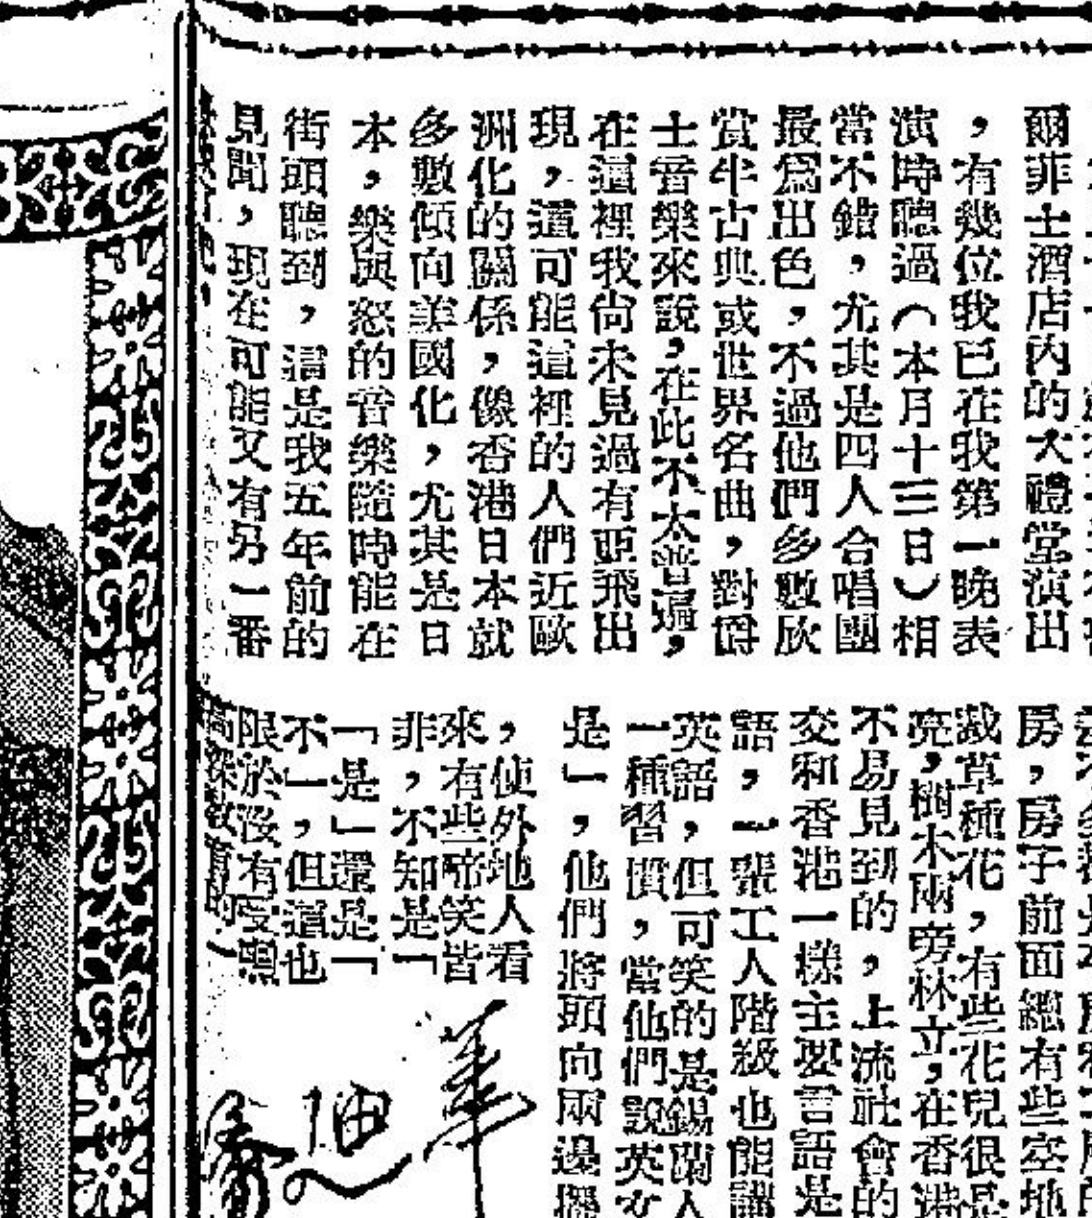 爾菲士酒店內的大禮堂演出
，有幾位我已在我第一晚表
演時聽過（本月十三日）相
當不錯，尤其是四人合唱團
最為出色，不過他們多數欣
賞半古典或世界名曲，對爵
士音樂來說，在此不太普遍，
在這裡我尚未見過有亞飛出
現，這可能這裡的人們近歐
洲化的關係，像香港日本就
多數傾向美國化，尤其是日
本，樂與怒的音樂隨時能在
街頭聽到，這是我五年前的
見聞，現在可能又有另一番
房，房子前面總有些空地
栽草種花，有些花兒很是
亮，樹木兩旁林立，在香港
不易見到的，上流社會的
交和香港一樣主要言語是
語，一輩工人階級也能講
英語，但可笑的是錫蘭人
一種習慣，當他們說英文
是」，他們將頭向兩邊擺
，使外地人看
來有些啼笑皆
非，不知是「
「是」還是「
不」，但這也
限於沒有受
華
迪